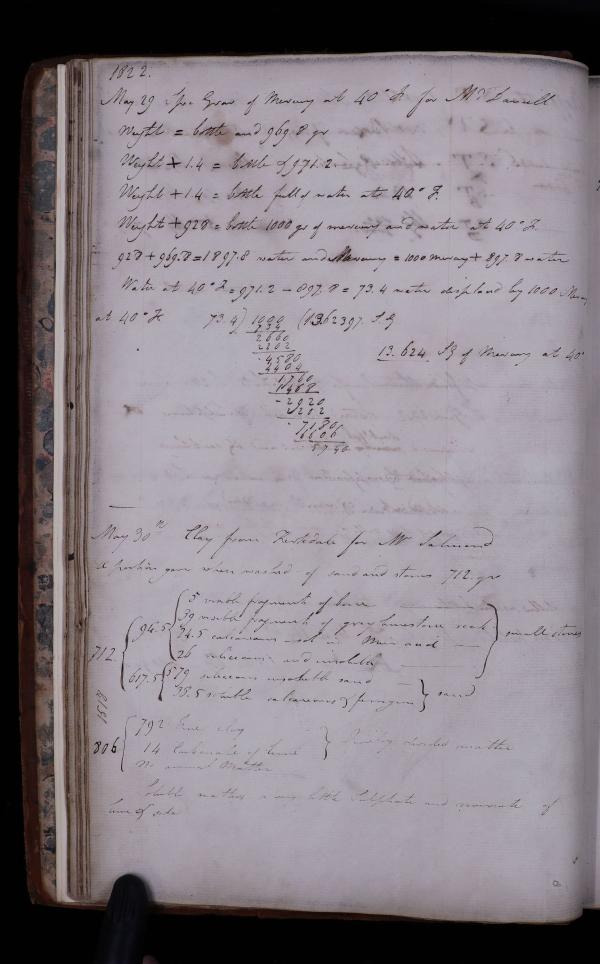 1822.
May 29 Spe Grav of Mercury at 40° F. for Mr
Weight = bottle and 969.8 gr
Weight + 1.4 = bottle & 971.2.
Weight + 1.4 = bottle full of water at 40° F.
Weight + 928 = bottle 1000 gr of mercury and water at 40° F.
928 + 969.8 = 1897.8 water and Mercury = 1000 mercury + 897.8 water
Water at 40° F = 971.2 - 897.8 = 73.4 water displaced by 1000 Mercury
at 40° F. 73.4) 1000 (1362397. S.G
734
2660
2202
4580
4404
1760
1468
2920
2202
7180
6606
5740
13.624 SG of Mercury at 40°
May 30th Clay from Kirkdale for Mr Salmond
A portion gave when washed of sand and stones 712. gr
712.
94.5
5 visible fragments of bone
39 visible fragments of grey limestone rock
24.5 calcareous in Muri acid
26 siliceous and insoluble
small stones
617.5
579 siliceous insoluble sand
38.5 soluble calcareous & ferrugin
sand
1518
806
792 Fine clay
14 Carbonate of lime
No animal Matter
finely divided matter
Soluble matter a very little Sulphate and muriate of
lime & soda